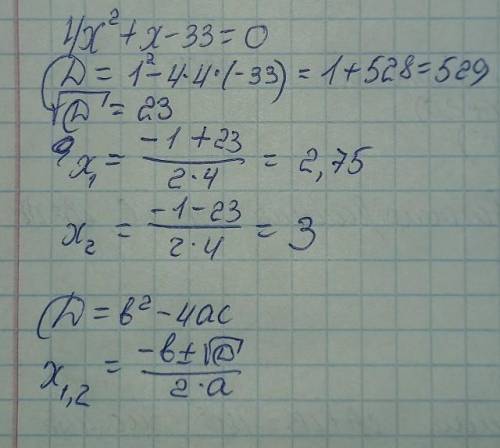 4x² + x - 33 = 0
D = 1² - 4·4·(-33) = 1 + 528 = 529
√D = 23
x₁ = (-1 + 23)/(2·4) = 2,75
x₂ = (-1 - 23)/(2·4) = 3
D = b² - 4ac
x₁,₂ = (-b ± √D)/(2·a)